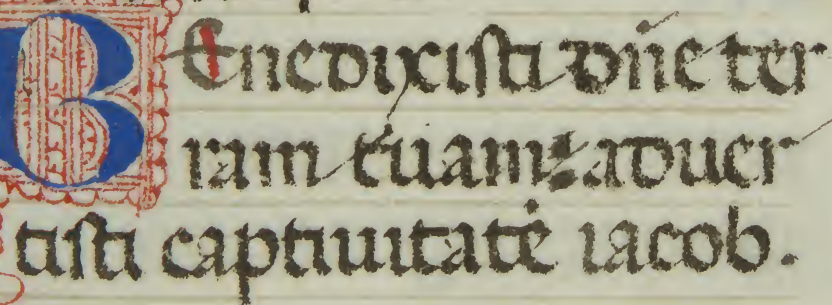 Benedixisti dn̄e ter
ram tuam: aduer
tisti captiuitatē iacob.